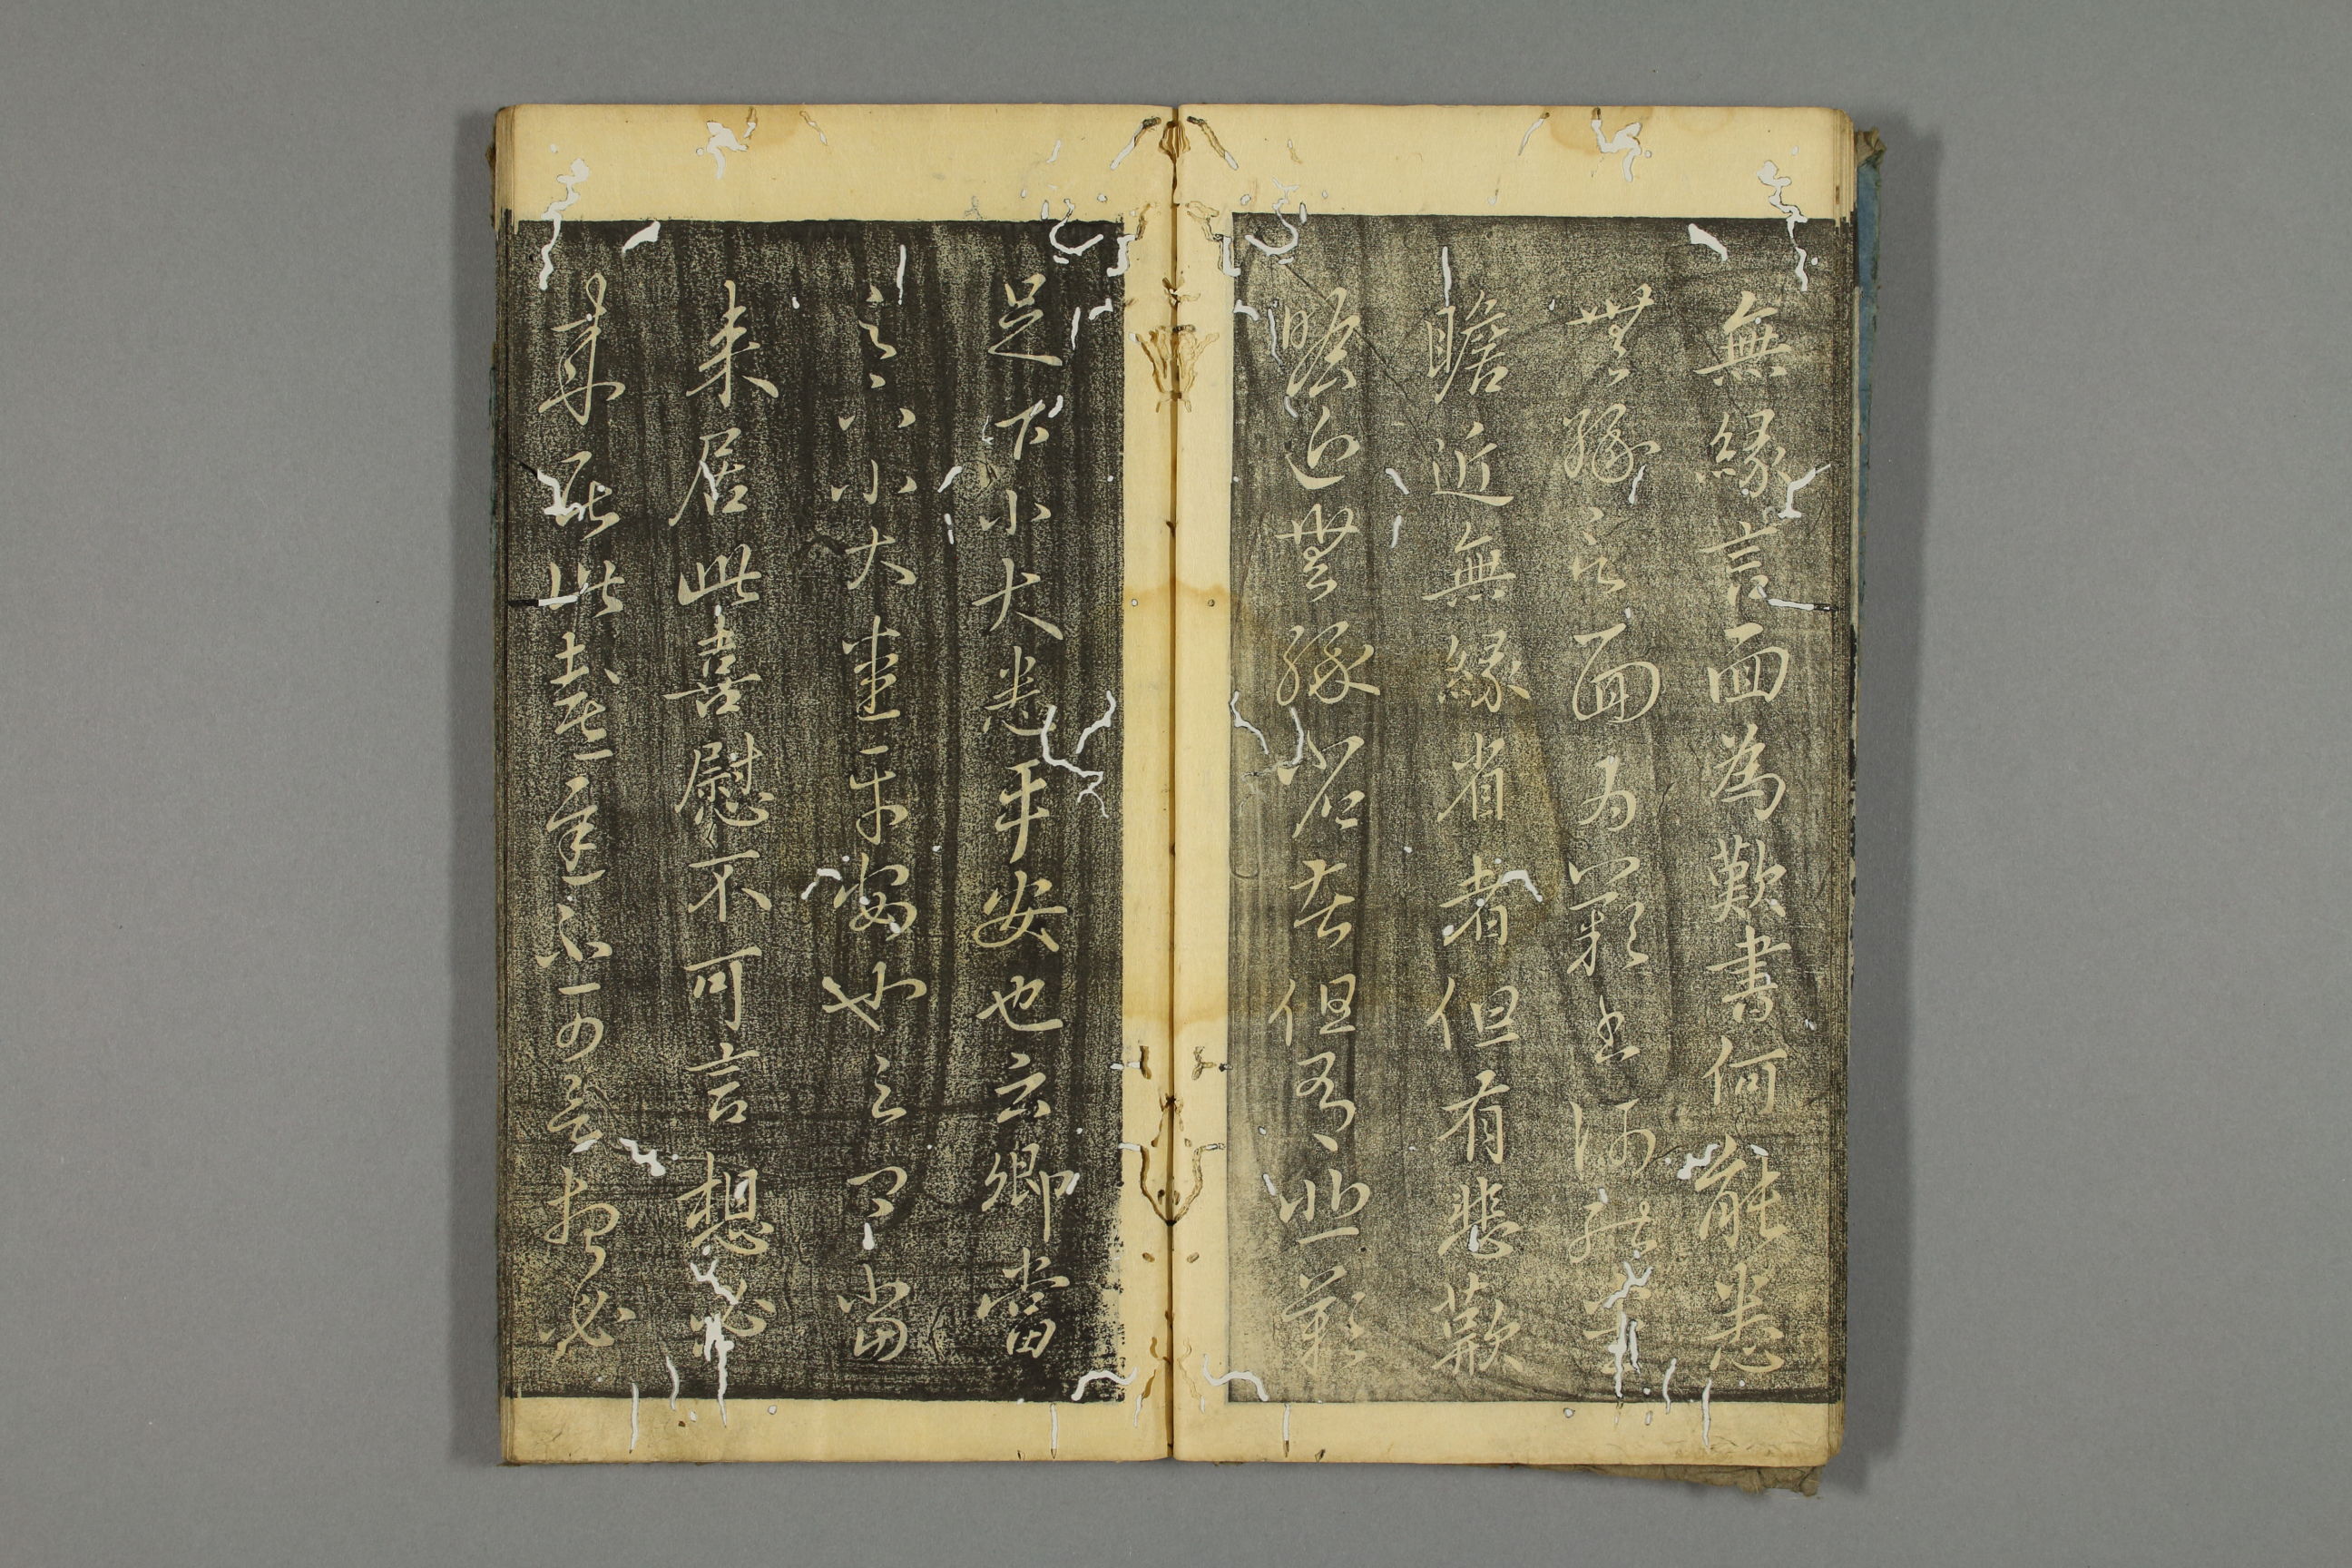 無緣言面為歎書何能悉
無緣言面為歎書何能悉
瞻近無緣省者但有悲歎
瞻近無緣省苦但有悲歎
足下小大悉平安也云卿當
足下小大悉平安也云卿當
来居此喜慰不可言想必
来居此喜遲不可言想必